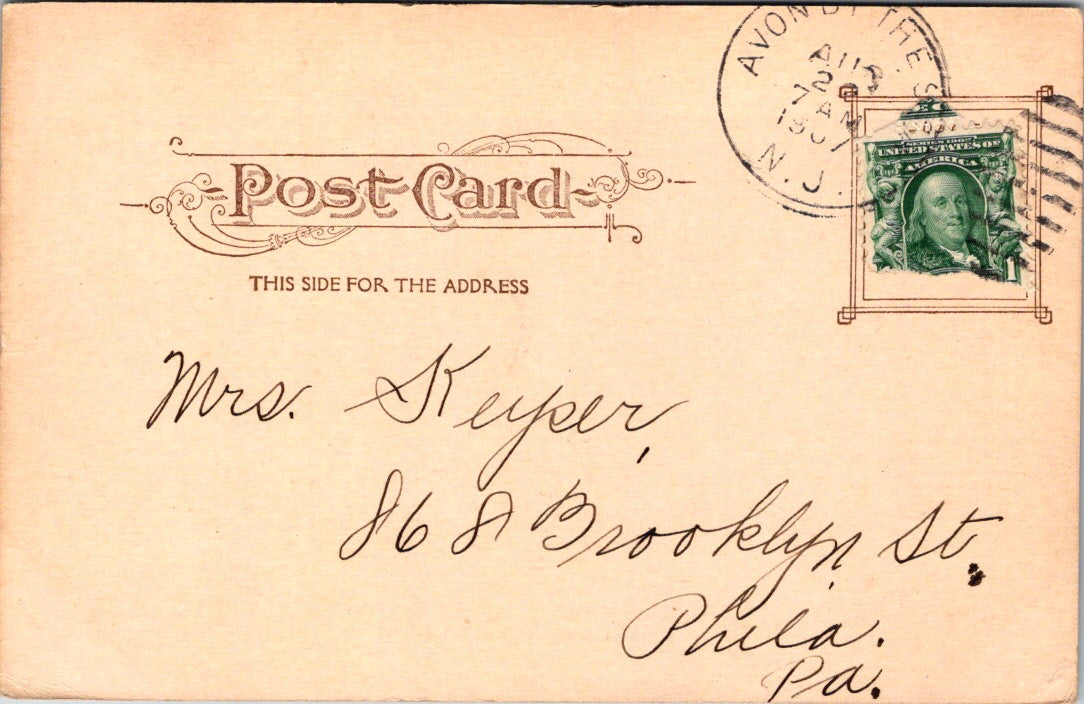 AVON BY THE S
AUG
2
7 AM
1907
N.J.
SERIES 1902
UNITED STATES OF
AMERICA
1
Post Card
THIS SIDE FOR THE ADDRESS
Mrs. Keyser,
868 Brooklyn St.
Phila.
Pa.